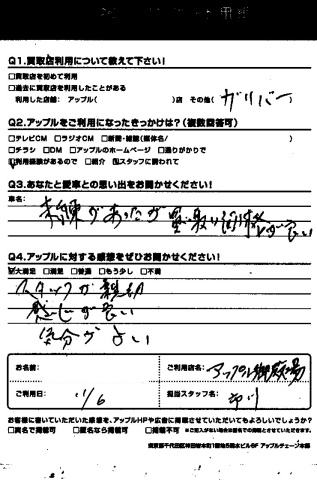 Q1.買取店利用について教えて下さい！
□買取店を初めて利用
□過去に買取店を利用したことがある
利用した店舗： アップル（ ）店 その他（ ガリバー ）
Q2.アップルをご利用になったきっかけは？（複数回答可）
□テレビCM □ラジオCM □新聞・雑誌（媒体名/ ）
□チラシ □DM □アップルのホームページ □通りがかりで
☑利用経験があるので □紹介 ☑スタッフに誘われて
Q3.あなたと愛車との思い出をお聞かせください！
車名：
未練があったが買取り価格が良い
Q4.アップルに対する感想をぜひお聞かせください！
☑大満足 □満足 □普通 □もう少し □不満
スタッフが親切
感じが良い
気分がよい
お名前：
ご利用店名： アップル
ご利用日： 11/6
担当スタッフ名： 市川
お客様に書いていただいた感想を、アップルHPや広告に掲載させていただいてもよろしいでしょうか？
□実名で掲載可 □匿名なら掲載可 □掲載不可 ※ご記入がない場合は匿名での掲載とさせていただきます。
東京都千代田区神田岩本町1番地5清水ビル6F アップルチェーン本部